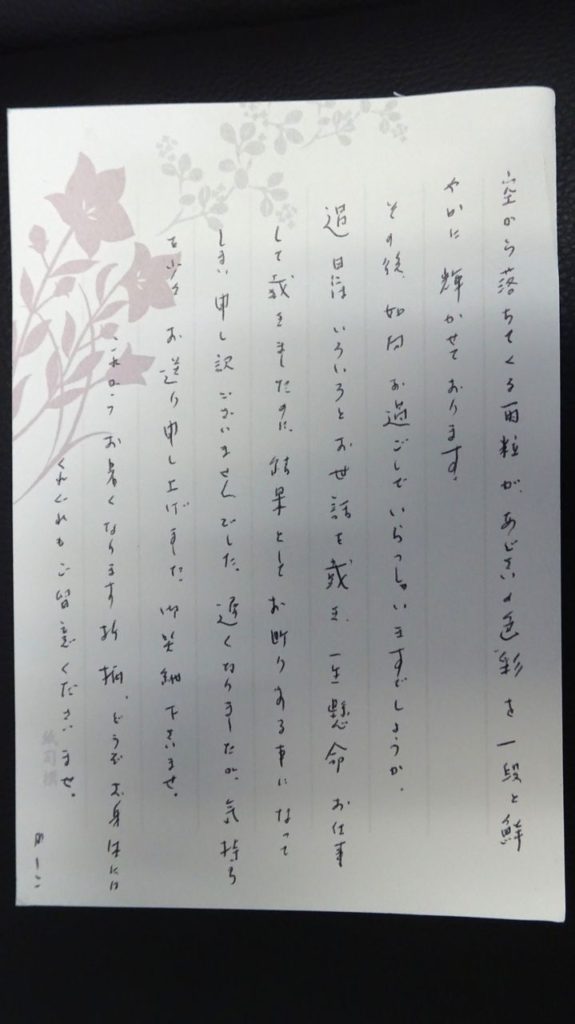 空から落ちてくる雨粒が、あじさいの色彩を一段と鮮
やかに輝かせております。
その後、如何お過ごしでいらっしゃいますでしょうか。
過日はいろいろとお世話を戴き、一生懸命お仕事
して戴きましたのに、結果としてお断りする事になって
しまい申し訳ございませんでした。遅くなりましたが、気持ち
を少々お送り申し上げました。御笑納下さいませ。
これからお暑くなります折柄、どうぞお身体には
くれぐれもご留意くださいませ。
かしこ
紙司撰